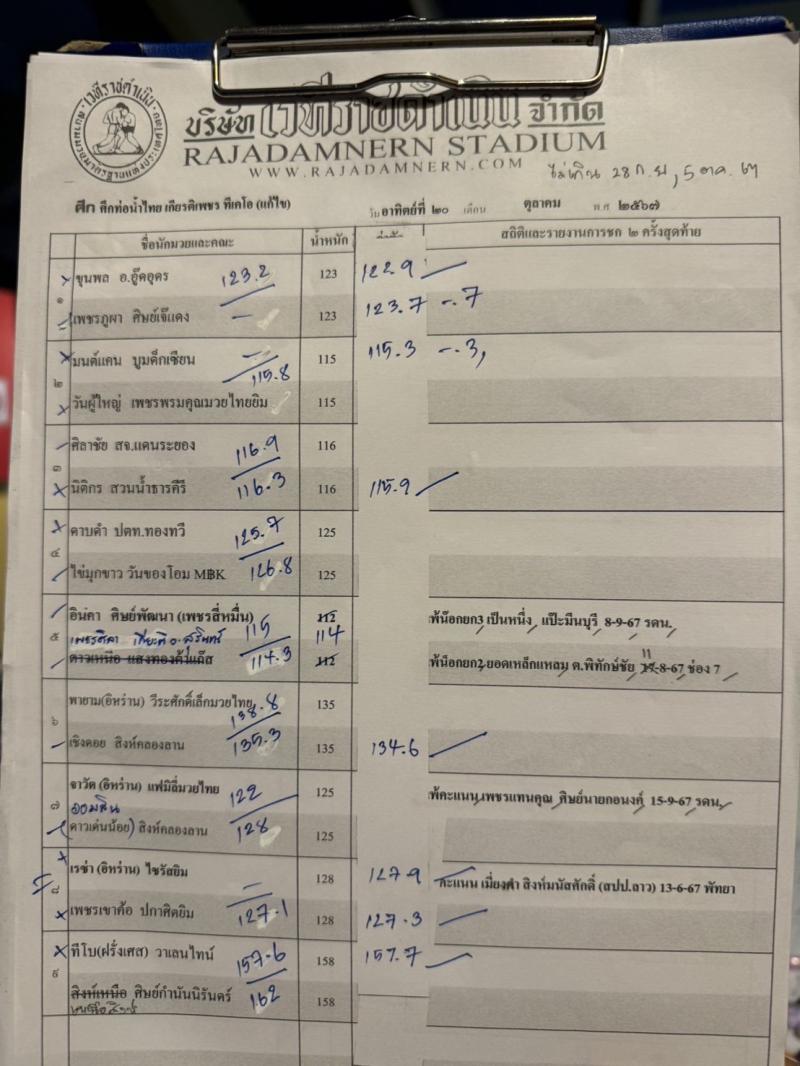 บริษัท เวทีราชดำเนิน จำกัด
RAJADAMNERN STADIUM
WWW.RAJADAMNERN.COM
ไม่เกิน 28 ก.ย, 5 ตค. 67
ศึก ศึกท่อน้ำไทย เกียรติเพชร ทีเคโอ (แก้ไข) วัน อาทิตย์ที่ ๒๐ เดือน ตุลาคม พ.ศ ๒๕๖๗
ชื่อนักมวยและคณะ น้ำหนัก สถิติและรายงานการชก ๒ ครั้งสุดท้าย
ขุนพล อ.อู๊ดอุดร 123.2 123 122.9
๑
เพชรภูผา ศิษย์เจ๊แดง 123 123.7 -.7
มนต์แคน บูมเด็กเซียน 115 115.3 -.3
๒ 115.8
วันผู้ใหญ่ เพชรพรมคุณมวยไทยยิม 115
ศิลาชัย สจ.แดนระยอง 116.9 116
๓
นิติกร สวนน้ำธารคีรี 116.3 116 115.9
ดาบดำ ปตท.ทองทวี 125.7 125
๔
ไข่มุกขาว วันของโอม MBK 126.8 125
อินคา ศิษย์พัฒนา (เพชรสี่หมื่น) 115 112 พ้น็อกยก3 เป็นหนึ่ง แป๊ะมีนบุรี 8-9-67 รดน.
๕ เพชรศิลา 114
ดาวเหนือ แสงทองค้าแก๊ส 114.3 112 พ้น็อกยก2 ยอดเหล็กแหลม ต.พิทักษ์ชัย 11-8-67 ช่อง 7
พายาม(อิหร่าน) วีระศักดิ์เล็กมวยไทย 138.8 135
๖
เชิงดอย สิงห์คลองลาน 135.3 135 134.6
จาวัด (อิหร่าน) แฟมิลี่มวยไทย 122 125 พ้คะแนน เพชรแทนคุณ ศิษย์นายกอนงค์ 15-9-67 รดน.
๗ ออมสิน
(ดาวเด่นน้อย) สิงห์คลองลาน 128 125
เรซ่า (อิหร่าน) ไซรัสยิม 128 127.9 คะแนน เมี่ยงคำ สิงห์มนัสศักดิ์ (สปป.ลาว) 13-6-67 พัทยา
๘
เพชรเขาค้อ ปกาศิตยิม 127.1 128 127.3
ทีโบ(ฝรั่งเศส) วาเลนไทน์ 157.6 158 157.7
๙
สิงห์เหนือ ศิษย์กำนันนิรันดร์ 162 158